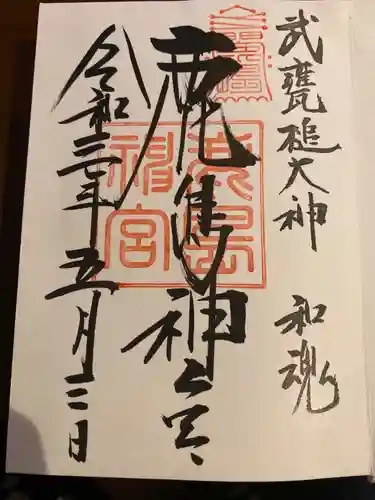 武甕槌大神　和魂
鹿島神宮
鹿島
神宮
令和三年五月三日